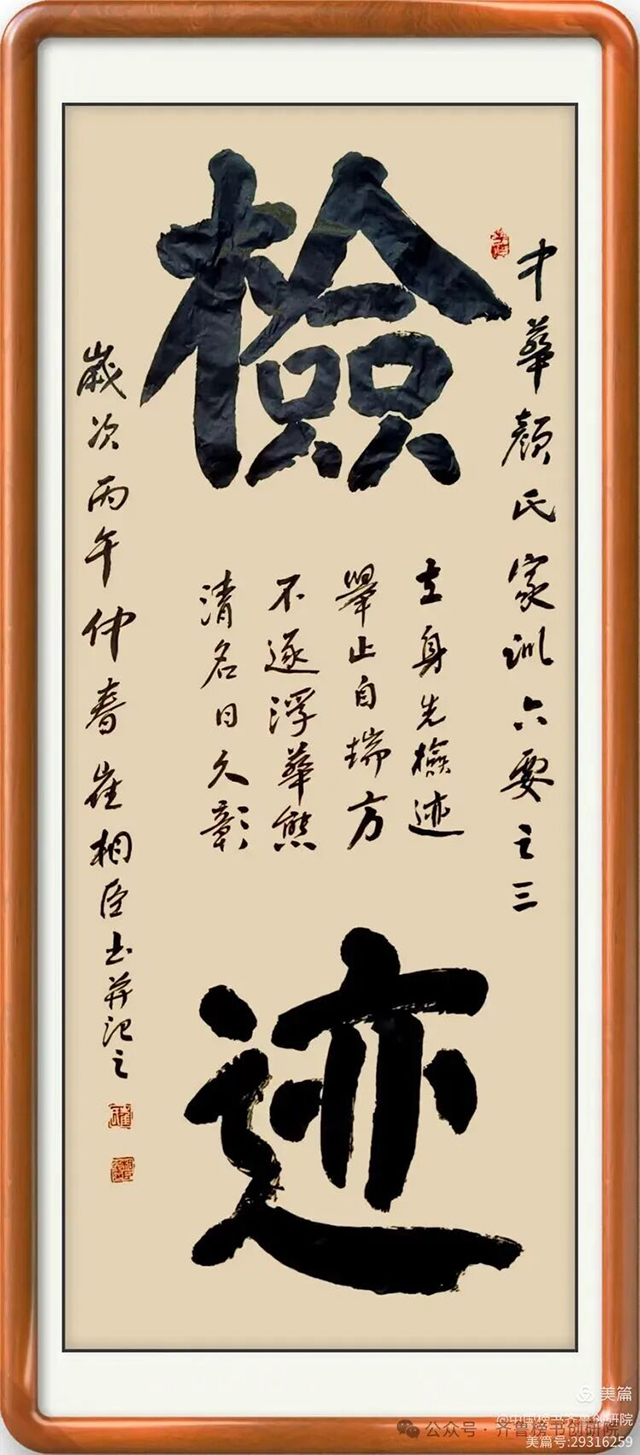 檢
迹
中華顏氏家訓六要之三
立身先檢迹
舉止自端方
不逐浮華態
清名日久彰
歲次丙午仲春崔相臣书并记之
美篇
公众号·齐鲁榜书创研院
美篇号:29316259